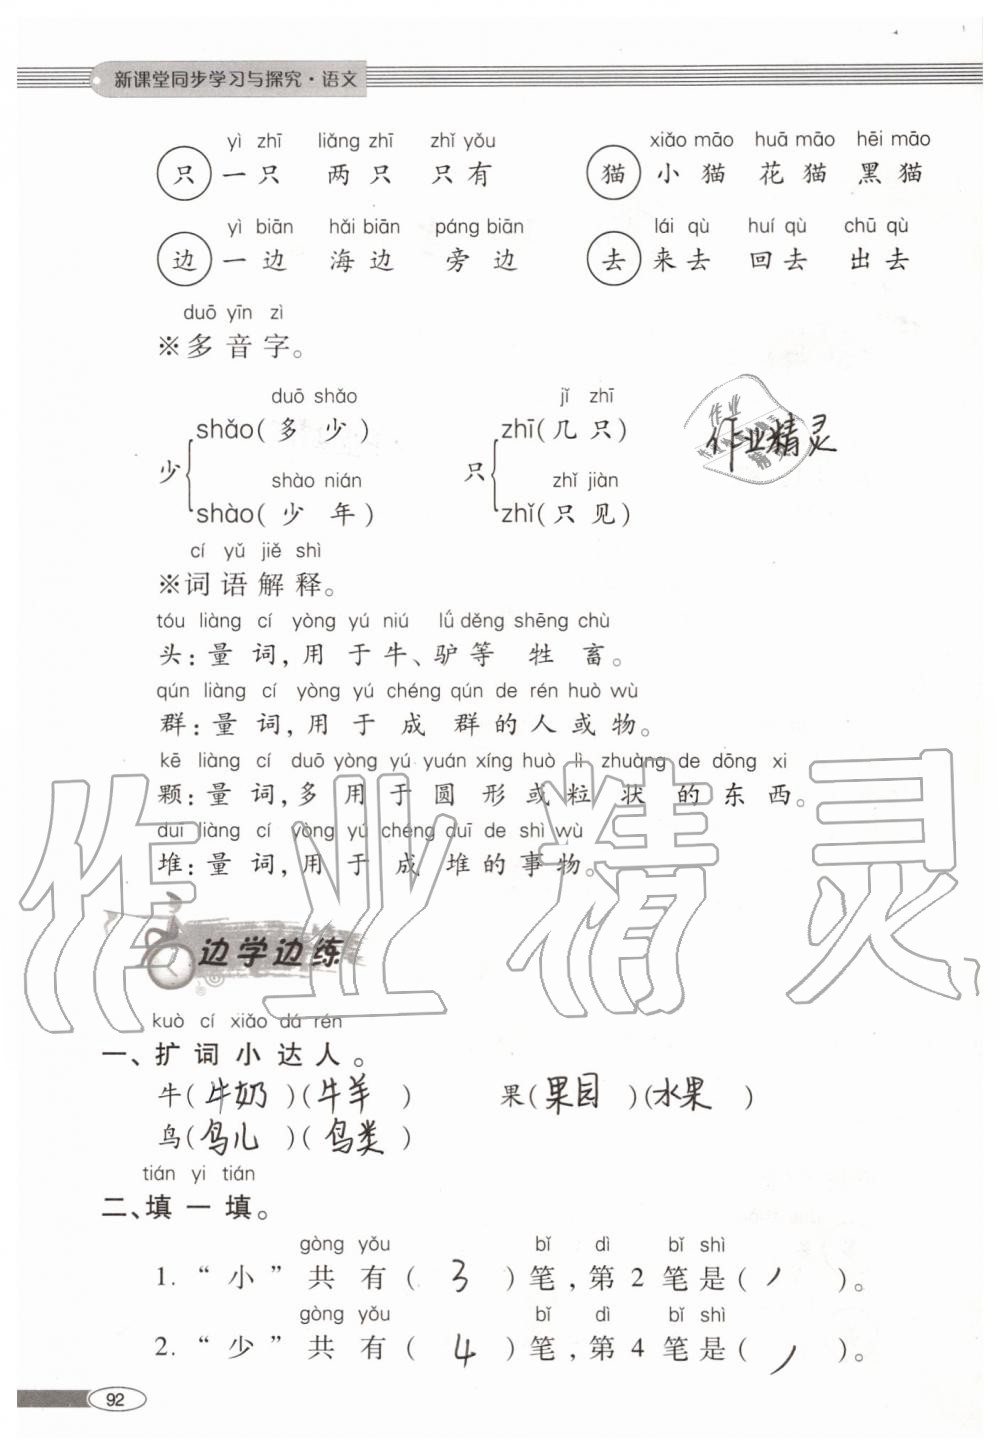 新课堂同步学习与探究·语文
yì zhī liǎng zhī zhǐ yǒu xiǎo māo huā māo hēi māo
只 一只 两只 只有 猫 小猫 花猫 黑猫
yì biān hǎi biān páng biān lái qù huí qù chū qù
边 一边 海边 旁边 去 来去 回去 出去
duō yīn zì
※多音字。
duō shǎo jǐ zhī
shǎo(多少) zhī(几只)
少 只
shào nián zhǐ jiàn
shào(少年) zhǐ(只见)
作业精灵
cí yǔ jiě shì
※词语解释。
tóu liàng cí yòng yú niú lǘ děng shēng chù
头:量词,用于牛、驴等牲畜。
qún liàng cí yòng yú chéng qún de rén huò wù
群:量词,用于成群的人或物。
kē liàng cí duō yòng yú yuán xíng huò lì zhuàng de dōng xi
颗:量词,多用于圆形或粒状的东西。
duī liàng cí yòng yú chéng duī de shì wù
堆:量词,用于成堆的事物。
作业精灵
边学边练
kuò cí xiǎo dá rén
一、扩词小达人。
牛(牛奶)(牛羊) 果(果园)(水果)
鸟(鸟儿)(鸟类)
tián yi tián
二、填一填。
gòng yǒu bǐ dì bǐ shì
1.“小”共有(3)笔,第2笔是(丿)。
gòng yǒu bǐ dì bǐ shì
2.“少”共有(4)笔,第4笔是(丿)。
92